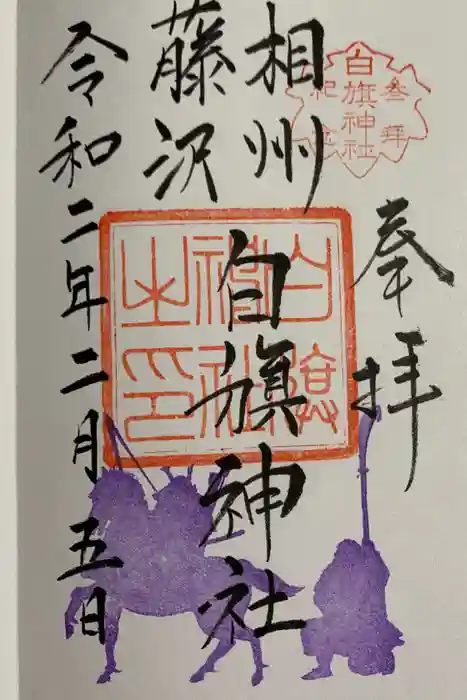 奉拝
相州
藤沢
白旗神社
令和二年二月五日
白旗神社
参拝
紀念
白旗
神社
之印